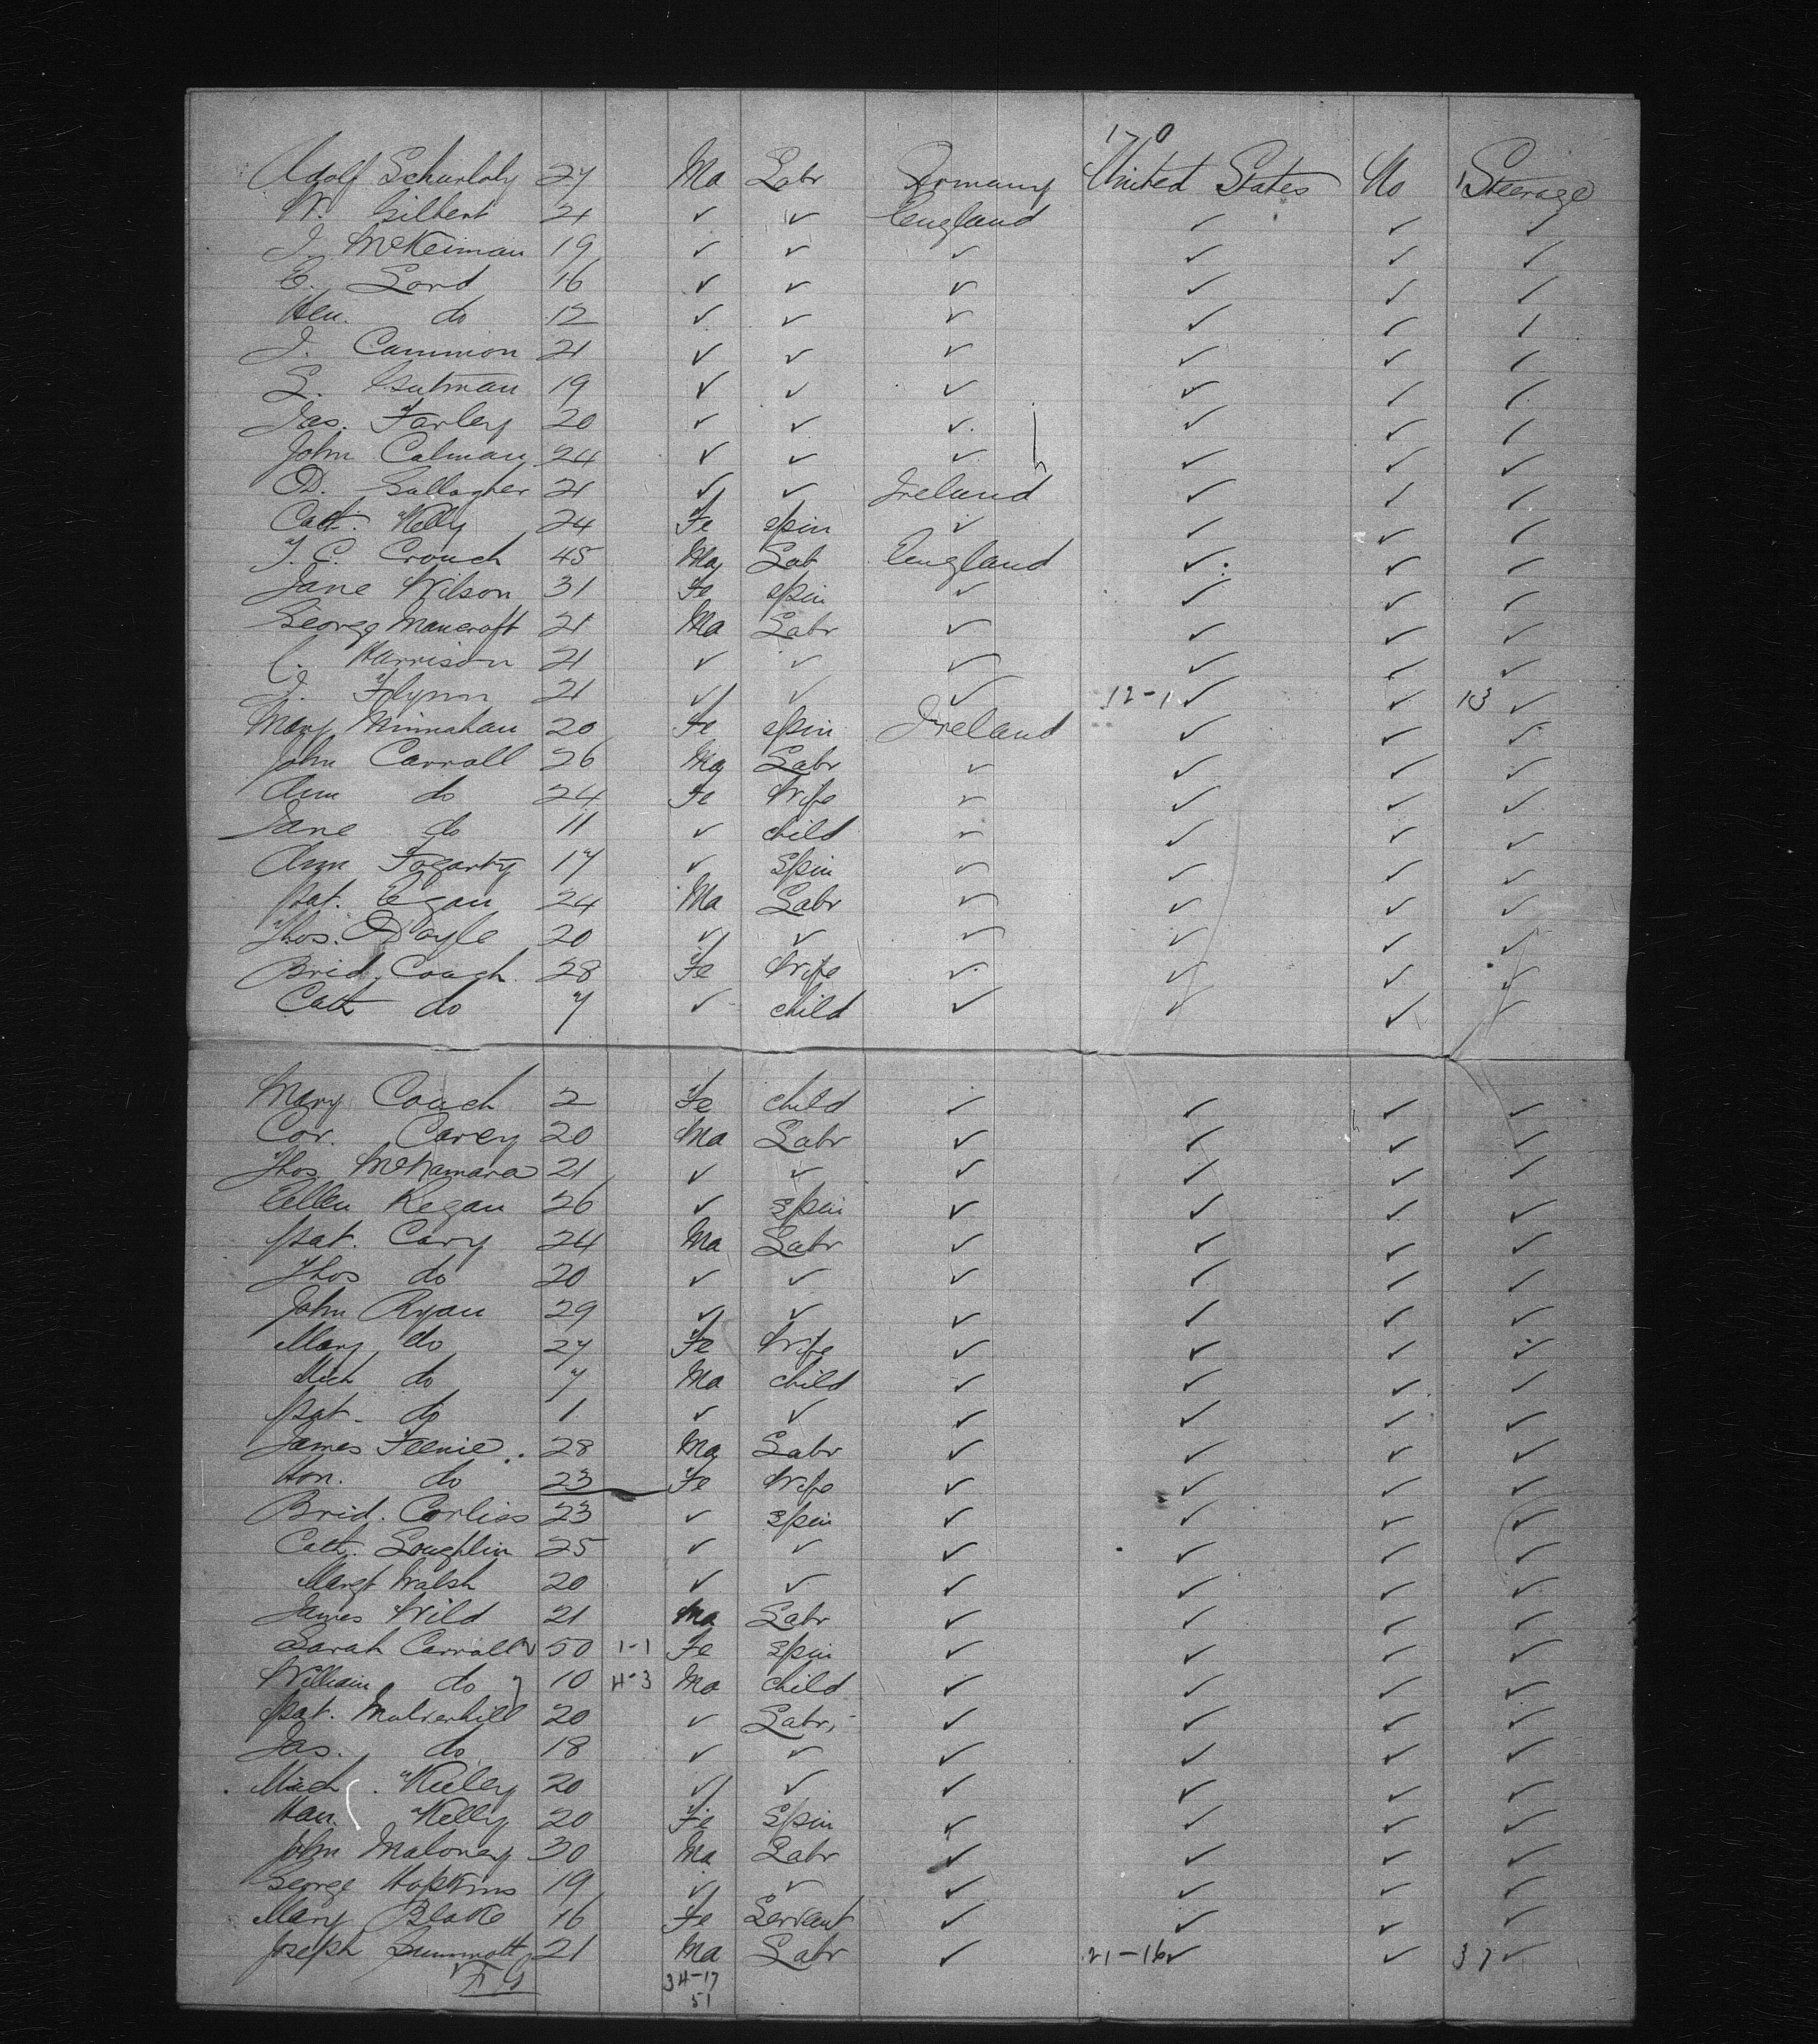 170
Adolf 27 Ma Labr Germany United States No Steerage
W. Gilbert 21 ✓ ✓ England ✓ ✓ ✓
J. McKeiman 19 ✓ ✓ ✓ ✓ ✓ ✓
C. Lord 16 ✓ ✓ ✓ ✓ ✓ ✓
Hen. do 12 ✓ ✓ ✓ ✓ ✓ ✓
J. Cammon 21 ✓ ✓ ✓ ✓ ✓ ✓
S. Gutman 19 ✓ ✓ ✓ ✓ ✓ ✓
Jas. Farley 20 ✓ ✓ ✓ ✓ ✓ ✓
John Calman 24 ✓ ✓ ✓ ✓ ✓ ✓
D. Gallagher 21 ✓ ✓ Ireland ✓ ✓ ✓
Cath. Kelly 24 Fe spin ✓ ✓ ✓ ✓
T. C. Crouch 45 Ma Lab England ✓ ✓ ✓
Jane Wilson 31 Fe spin ✓ ✓ ✓ ✓
George Mancroft 21 Ma Labr ✓ ✓ ✓ ✓
C. Harrison 21 ✓ ✓ ✓ ✓ ✓ ✓
J. Flynn 21 ✓ ✓ ✓ 12-1 ✓ ✓ 13 ✓
Mary Minnahan 20 Fe spin Ireland ✓ ✓ ✓
John Carroll 26 Ma Labr ✓ ✓ ✓ ✓
Ann do 24 Fe Wife ✓ ✓ ✓ ✓
Jane do 11 ✓ child ✓ ✓ ✓ ✓
Ann Fogarty 17 ✓ Spin ✓ ✓ ✓ ✓
Pat. Egan 24 Ma Labr ✓ ✓ ✓ ✓
Thos. Doyle 20 ✓ ✓ ✓ ✓ ✓ ✓
Brid. Coach 28 Fe Wife ✓ ✓ ✓ ✓
Cath do 7 ✓ child ✓ ✓ ✓ ✓
Mary Coach 2 Fe child ✓ ✓ ✓ ✓
Cor. Carey 20 Ma Labr ✓ ✓ ✓ ✓
Thos McNamara 21 ✓ ✓ ✓ ✓ ✓ ✓
Eellen Regan 26 ✓ spin ✓ ✓ ✓ ✓
Pat. Cary 24 Ma Labr ✓ ✓ ✓ ✓
Thos do 20 ✓ ✓ ✓ ✓ ✓ ✓
John Ryan 29 ✓ ✓ ✓ ✓ ✓ ✓
Mary do 27 Fe Wife ✓ ✓ ✓ ✓
Mich do 7 Ma child ✓ ✓ ✓ ✓
Pat. do 1 ✓ ✓ ✓ ✓ ✓ ✓
James Feenie 28 Ma Labr ✓ ✓ ✓ ✓
Hon. do 23 Fe Wife ✓ ✓ ✓ ✓
Brid. Corliss 23 ✓ spin ✓ ✓ ✓ ✓
Cath. Loughlin 25 ✓ ✓ ✓ ✓ ✓ ✓
Margt Walsh 20 ✓ ✓ ✓ ✓ ✓ ✓
James Wild 21 Ma Labr ✓ ✓ ✓ ✓
Sarah Carroll 50 1-1 Fe spin ✓ ✓ ✓ ✓
William do 10 4-3 Ma child ✓ ✓ ✓ ✓
Pat. Mulverhill 20 ✓ Labr. ✓ ✓ ✓ ✓
Jas. do 18 ✓ ✓ ✓ ✓ ✓ ✓
Mich. Kieley 20 ✓ ✓ ✓ ✓ ✓ ✓
Han. Kelly 20 Fe Spin ✓ ✓ ✓ ✓
John Maloney 30 Ma Labr ✓ ✓ ✓ ✓
George Hopkins 19 ✓ ✓ ✓ ✓ ✓ ✓
Mary Blake 16 Fe Servant ✓ ✓ ✓ ✓
Joseph 21 Ma Labr ✓ 21-16 ✓ ✓ 37 ✓
34-17
51